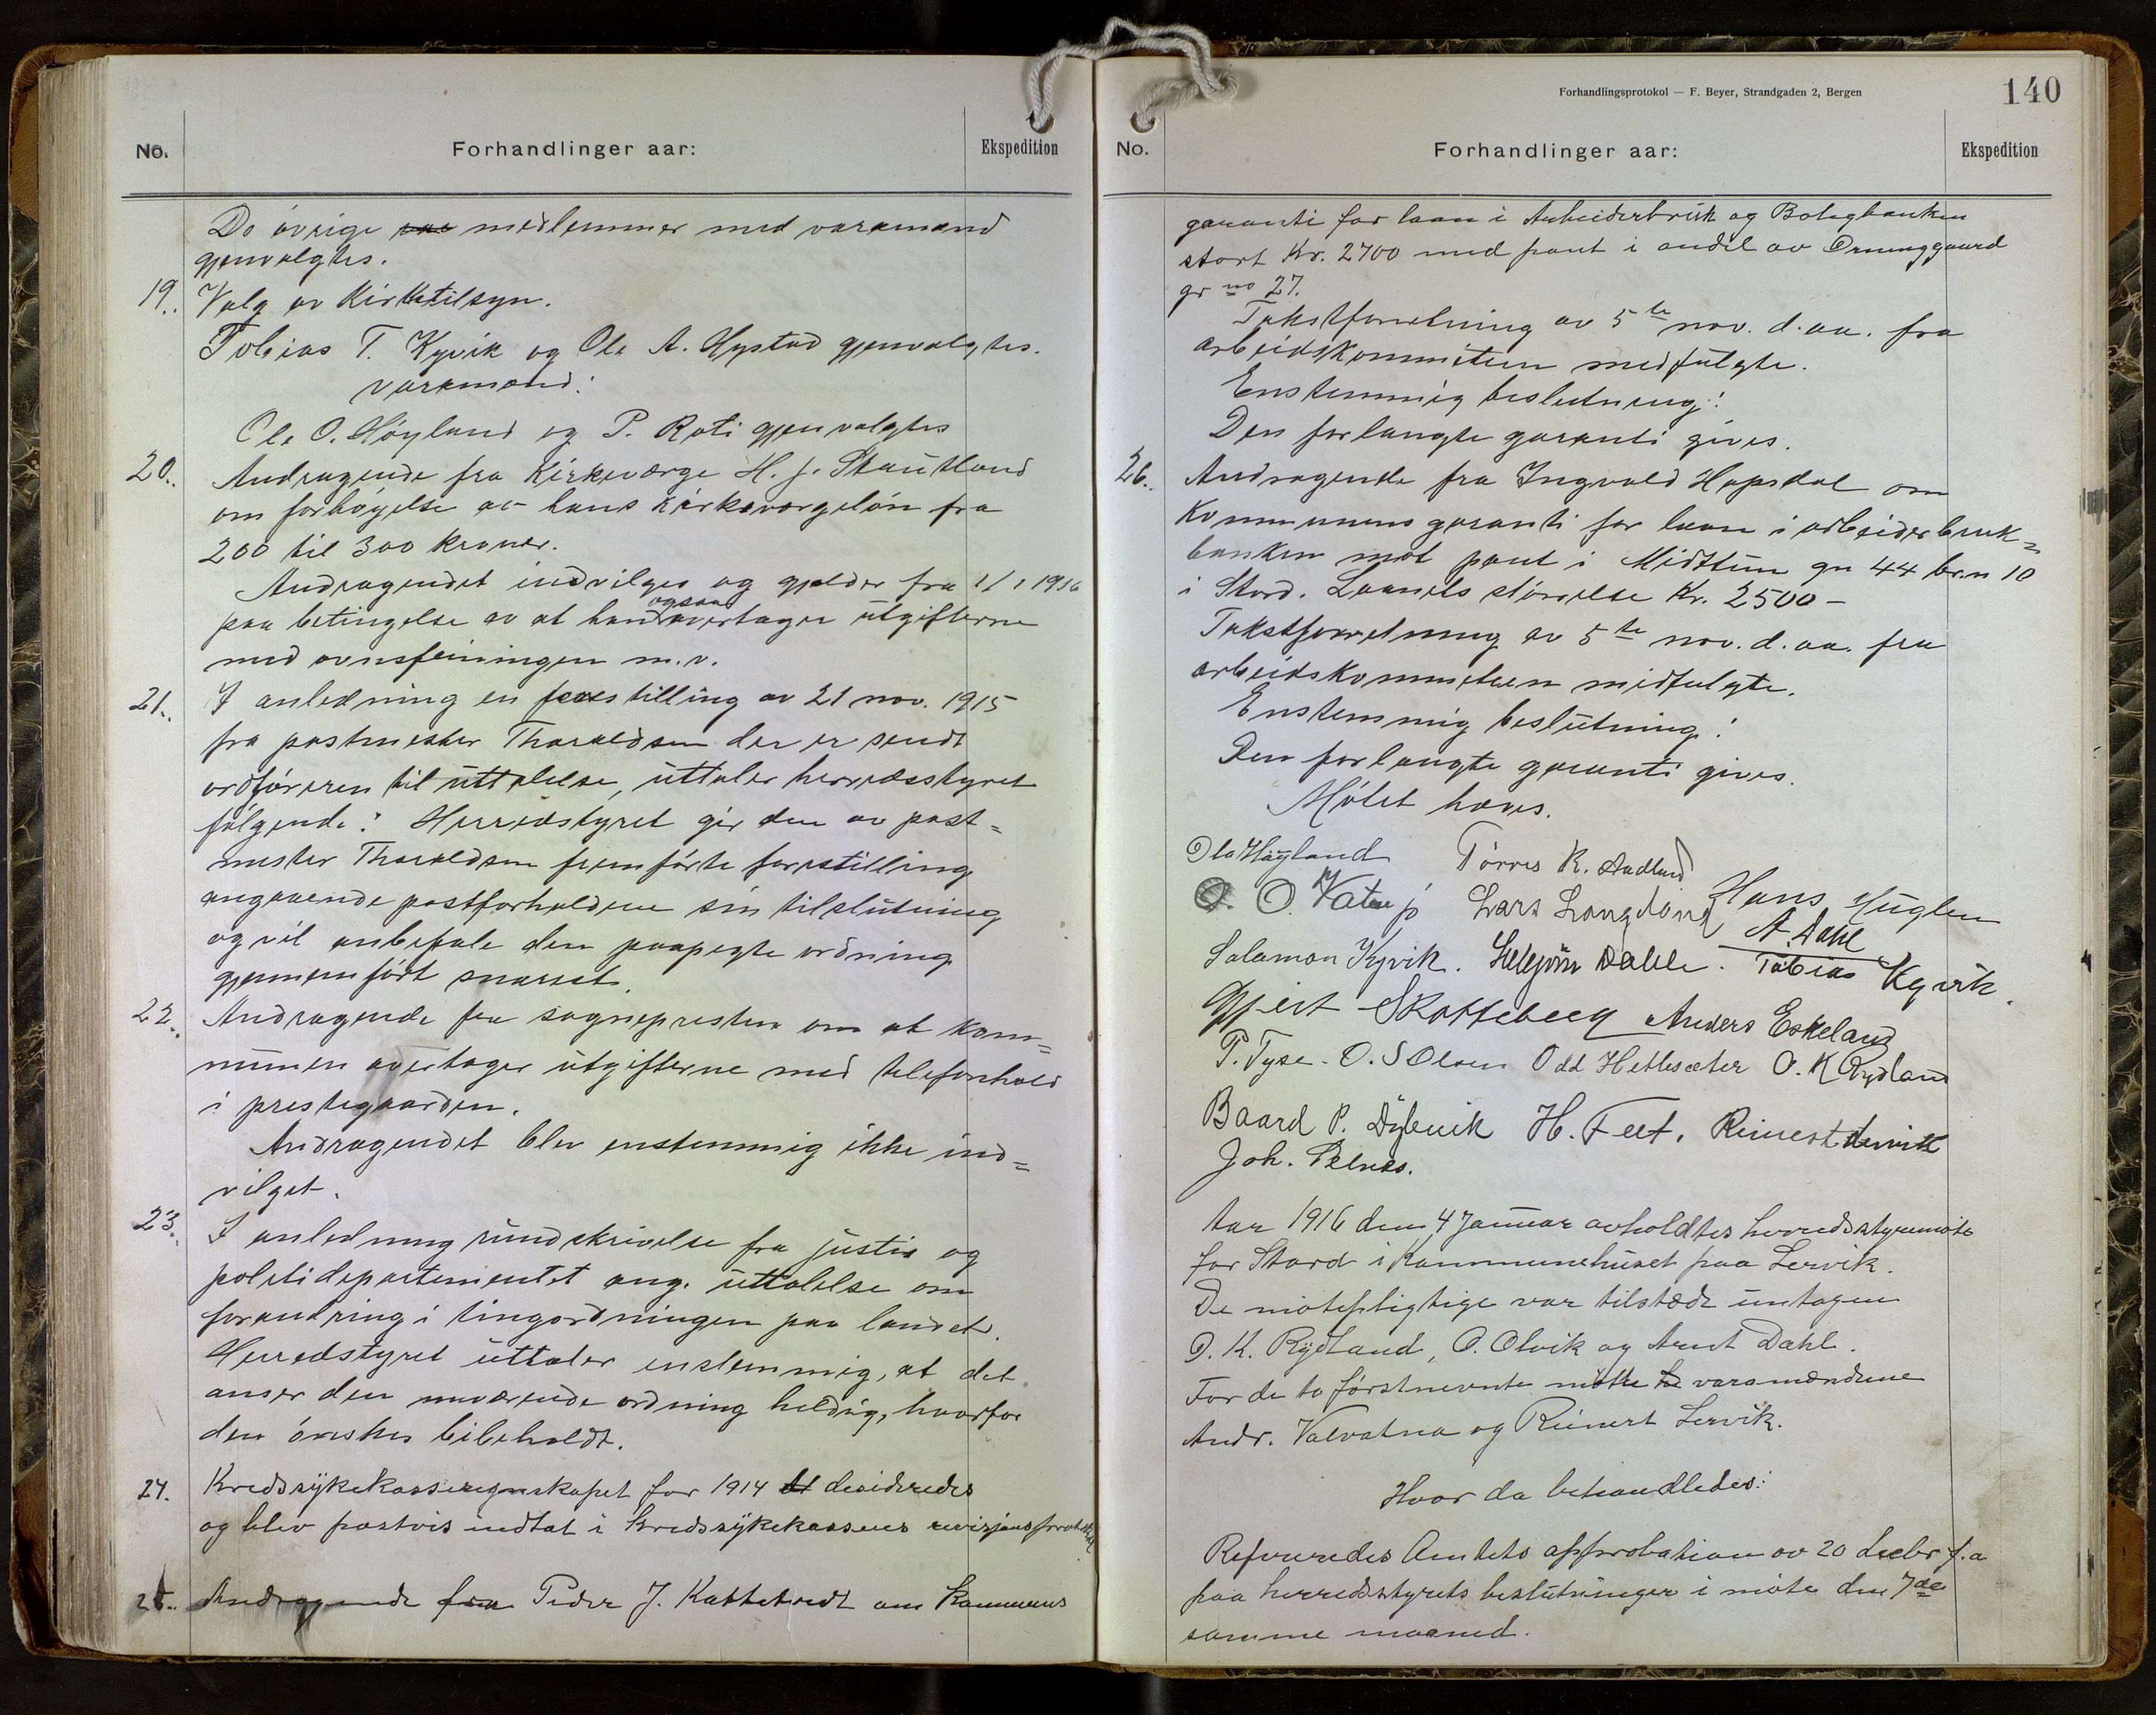 No.
Forhandlinger aar:
Ekspedition
De øvrige medlemmer med varamænd
gjenvalgtes.
19. Valg av Kirketilsyn.
Tobias T. Kyvik og Ole A. Hystad gjenvalgtes.
varamænd:
Ole O. Høyland og P. Roti gjenvalgtes
20. Andragende fra Kirkeværge H. J. Stautland
om forhøyelse av hans kirkeværgeløn fra
200 til 300 kroner.
Andragendet indvilges og gjelder fra 1/1 1916
paa betingelse av at han ogsaa overtager utgifterne
med ovnsfeiningen m.v.
21. I anledning en forestilling av 21 nov. 1915
fra postmester Thoraldsen der er sendt
ordføreren til uttalelse, uttaler herredsstyret
følgende: Herredstyret gir den av post=
mester Thoraldsen fremførte forestilling
angaaende postforholdene sin tilslutning
og vil anbefale den paapegte ordning
gjennemført snarest.
22. Andragende fra sognepresten om at kom=
munen overtager utgifterne med telefonhold
i prestegaarden.
Andragendet blev enstemmig ikke ind=
vilget.
23. I anledning rundskrivelse fra justis og
politidepartementet ang. uttalelse om
forandring i tingordningen paa landet.
Herredstyret uttaler enstemmig, at det
anser den nuværende ordning heldig, hvorfor
den ønskes bibeholdt.
24. Kredssykekasseregnskapet for 1914 decideredes
og blev postvis indtat i kredssykekassens revisjonsprotokol
25. Andragende fra Peder J. Kattetvedt om Kommunens
Forhandlingsprotokol — F. Beyer, Strandgaden 2, Bergen
140
No.
Forhandlinger aar:
Ekspedition
garanti for laan i Arbeiderbruk og Boligbanken
stort Kr. 2700 med pant i andel av Orninggaard
gr no 27.
Takstforretning av 5te nov. d. aa. fra
arbeidskommiteen medfulgte.
Enstemmig beslutning:
Den forlangte garanti gives.
26. Andragende fra Ingvald Hopsdal om
Kommunens garanti for laan i arbeiderbruk=
banken mot pant i Midttun gn 44 br.n 10
i Stord. Laanets størrelse Kr. 2500 –
Takstforretning av 5te nov. d. aa. fra
arbeidskommiteen medfulgte.
Enstemmig beslutning:
Den forlangte garanti gives.
Møtet hæves.
Ola Høyland Tørres K. Aadland
O. Vatne Lars Langeland Hans Huglen
A. Dahl
Salamon Kyvik. Dahle. Tobias Kyvik.
Gjert Skotteberg Anders Eskeland
P. Tyse. O. S Olsen Odd Hetlesæter O. K Rydland
Baard P. Dybvik H. Feet. Reinert Lervik
Joh. Pelnes.
Aar 1916 den 4 Januar avholdtes herredsstyremøte
for Stord i Kommunehuset paa Lervik.
De møtepligtige var tilstæde untagen
O. K. Rydland, O. Olvik og Arnt Dahl.
For de to førstnevnte møtte varamændene
Andr. Valvatna og Reinert Lervik.
Hvor da behandledes:
Refereredes Amtets approbation av 20 decbr f. a
paa herredsstyrets beslutninger i møte den 7de
samme maaned.